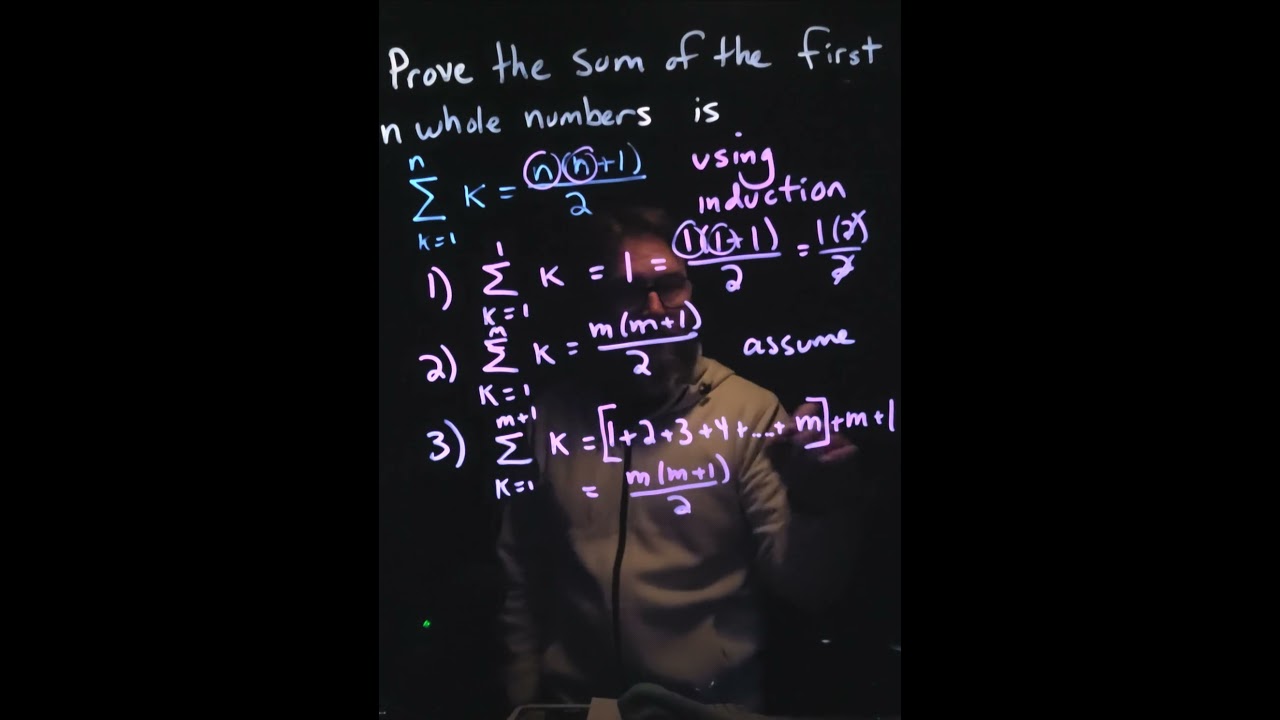 Prove the sum of the first
n whole numbers is
n
∑ K = n(n+1)/2 using induction
k=1
1
1) ∑ K = 1 = 1(1+1)/2 = 1(2)/2
K=1
m
2) ∑ K = m(m+1)/2 assume
K=1
m+1
3) ∑ K = [1+2+3+4+...+m]+m+1
K=1 = m(m+1)/2